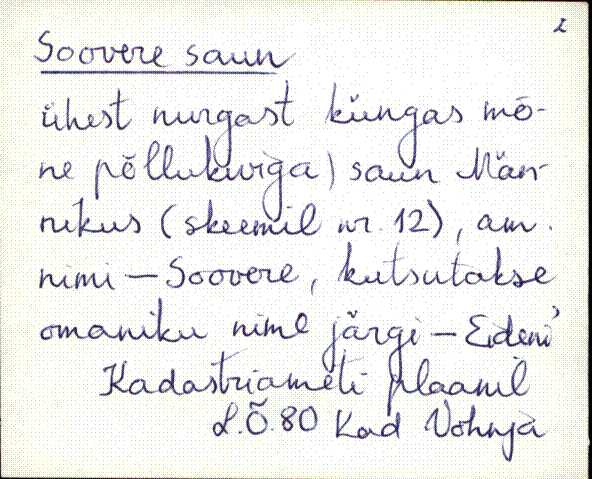 2
Soovere saun
ühest nurgast küngas mõ-
ne põllukiviga) saun Män-
nikus (skeemil nr. 12), am.
nimi – Soovere, kutsutakse
omaniku nime järgi – Eideni
Kadastriameti plaanil
L.Õ. 80 Kad Vohnja